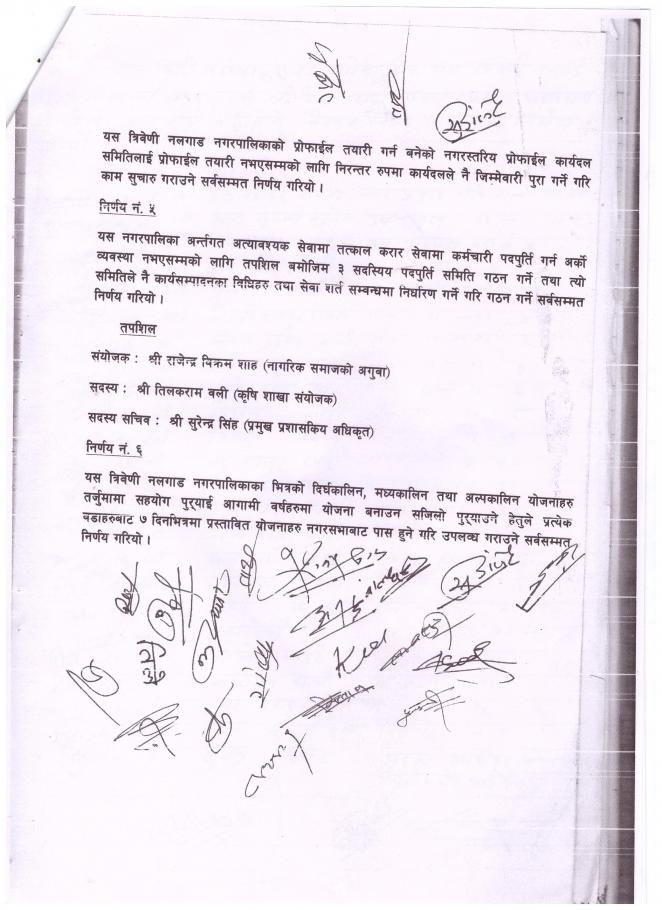 यस त्रिवेणी नलगाड नगरपालिकाको प्रोफाईल तयारी गर्न बनेको नगरस्तरिय प्रोफाईल कार्यदल
समितिलाई प्रोफाईल तयारी नभएसम्मको लागि निरन्तर रुपमा कार्यदलले नै जिम्मेवारी पुरा गर्ने गरि
काम सुचारु गराउने सर्वसम्मत निर्णय गरियो ।
निर्णय नं. ५
यस नगरपालिका अर्न्तगत अत्यावश्यक सेवामा तत्काल करार सेवामा कर्मचारी पदपुर्ति गर्न अर्को
व्यवस्था नभएसम्मको लागि तपशिल बमोजिम ३ सदस्यिय पदपुर्ति समिति गठन गर्ने तथा त्यो
समितिले नै कार्यसम्पादनका विधिहरु तथा सेवा शर्त सम्वन्धमा निर्धारण गर्ने गरि गठन गर्ने सर्वसम्मत
निर्णय गरियो ।
तपशिल
संयोजक : श्री राजेन्द्र विक्रम शाह (नागरिक समाजको अगुवा)
सदस्य : श्री तिलकराम वली (कृषि शाखा संयोजक)
सदस्य सचिव : श्री सुरेन्द्र सिंह (प्रमुख प्रशासकिय अधिकृत)
निर्णय नं. ६
यस त्रिवेणी नलगाड नगरपालिकाका भित्रको दिर्घकालिन, मध्यकालिन तथा अल्पकालिन योजनाहरु
तर्जुमामा सहयोग पुर्‍याई आगामी वर्षहरुमा योजना बनाउन सजिलो पुर्‍याउने हेतुले प्रत्येक
वडाहरुबाट ७ दिनभित्रमा प्रस्तावित योजनाहरु नगरसभाबाट पास हुने गरि उपलब्ध गराउने सर्वसम्मत
निर्णय गरियो ।